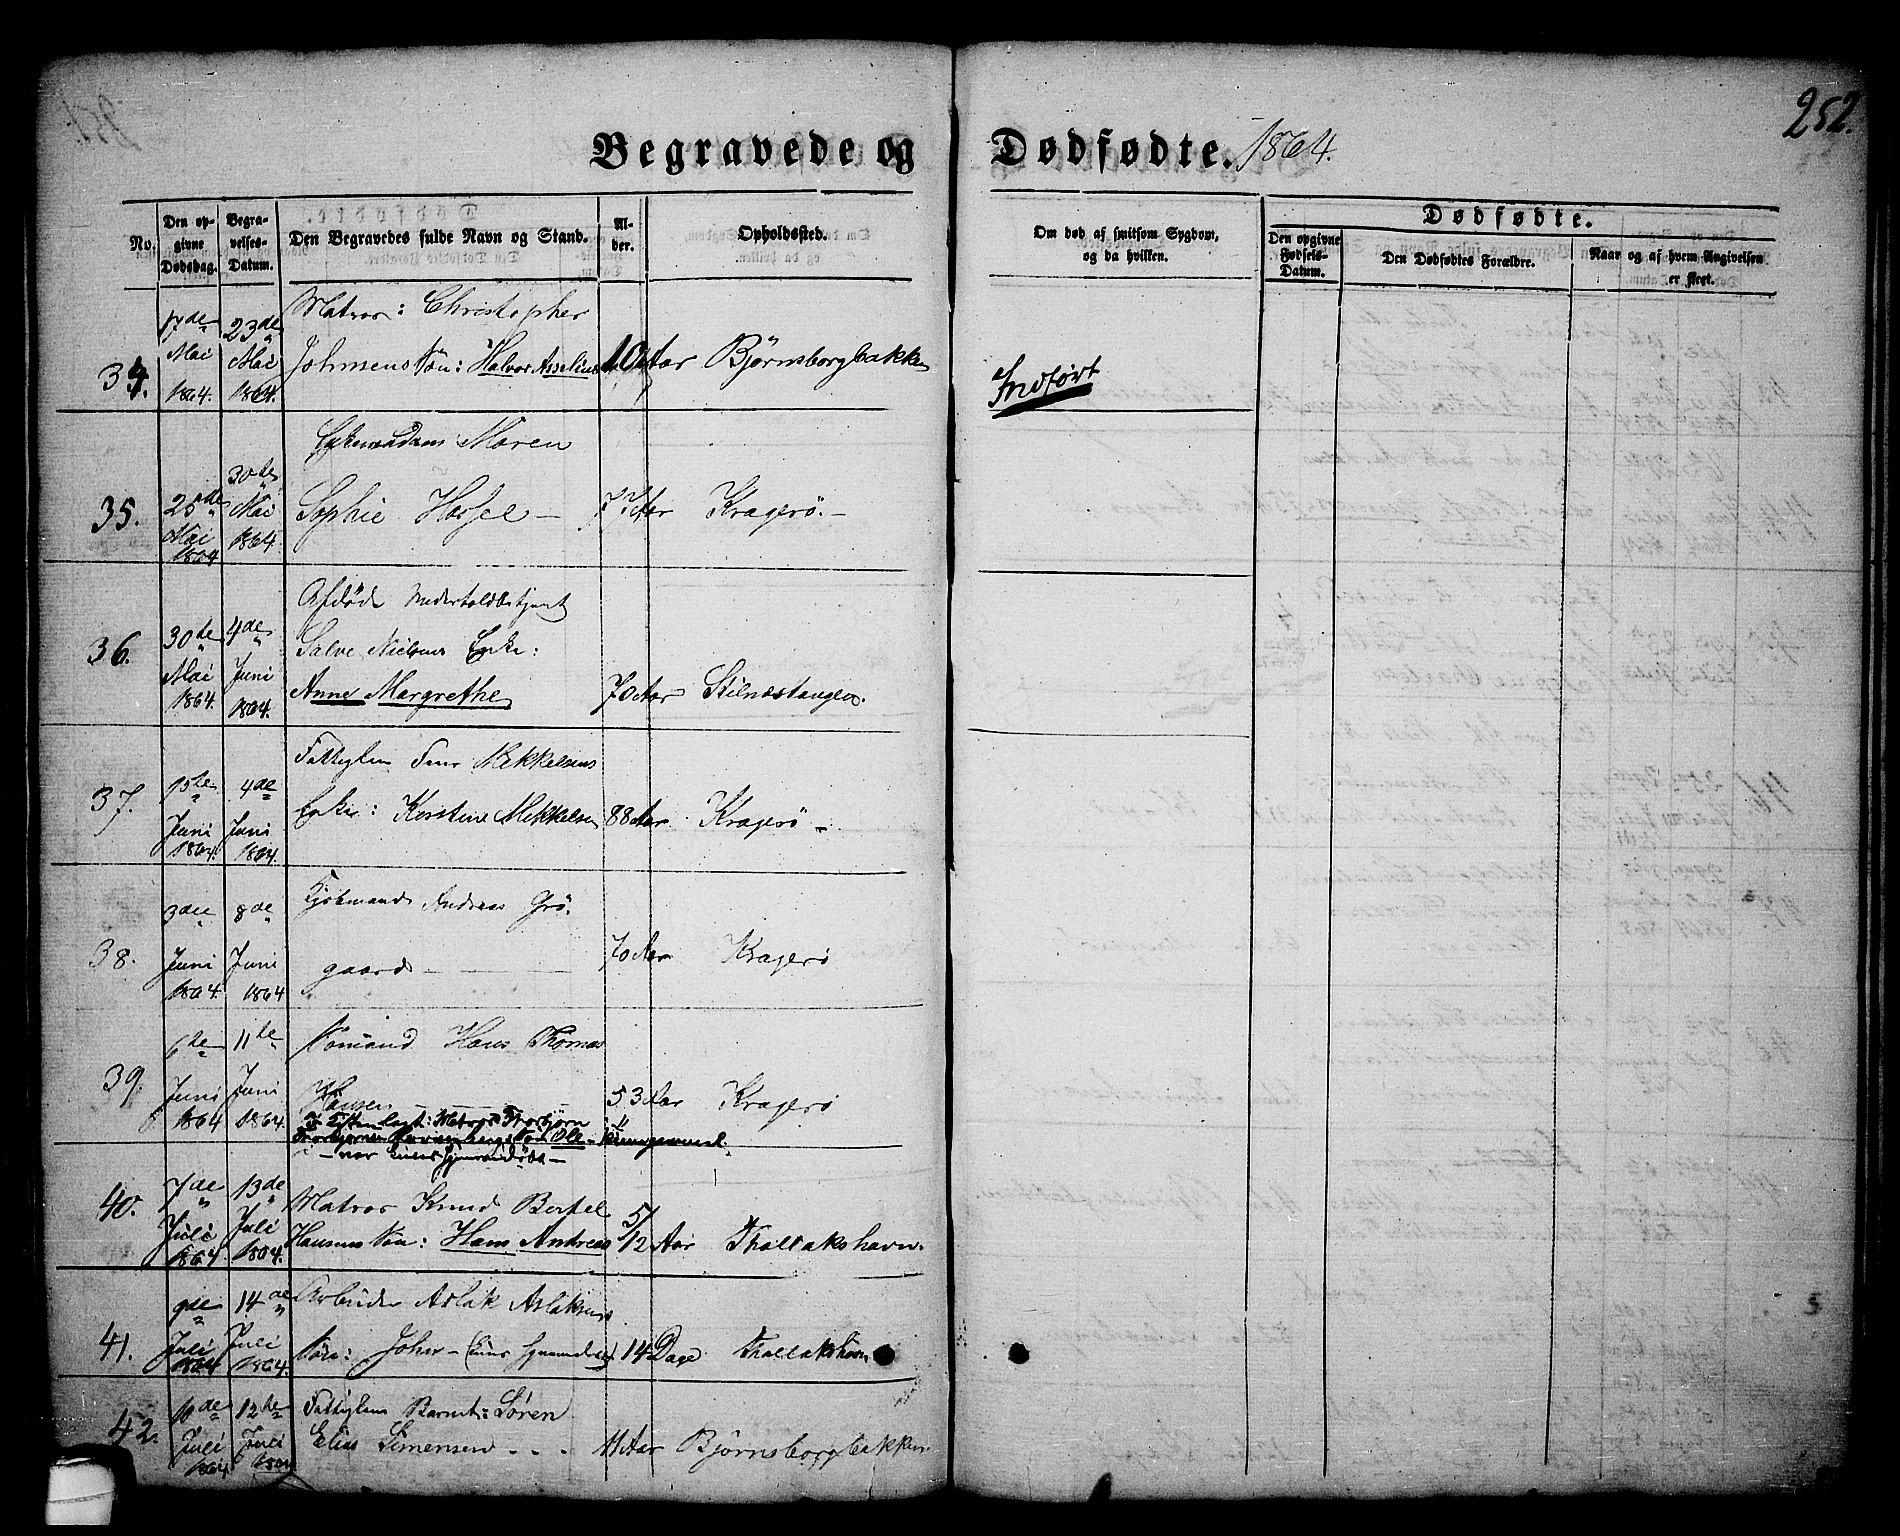 252.
Begravede og Dødfødte. 1864.
No.
Den opgivne Dødsdag.
Begravelses-Datum.
Den Begravedes fulde Navn og Stand.
Alder.
Opholdssted.
Om død af smitsom Sygdom, og da hvilken.
Dødfødte.
Den opgivne Fødsels-Datum.
Den Dødfødtes Forældre.
Naar og af hvem Angivelsen er skeet.
34.
17de Mai 1864.
23de Mai 1864.
Matros: Christopher
Johnsens Søn: Halvor
10 Aar
Bjørnsborgbakken
Indført
35.
25de Mai 1864
30te Mai 1864.
Maren
Sophie
Aar
Kragerø. -
36.
30te Mai 1864.
4de Juni 1864.
Afdød
Salve Nielsens Enke:
Anne Margrethe
70 Aar
Stilnæstangen.
37.
Juni 1864.
4de Juni 1864.
Fattiglem Mekkelsens
Enke: Kirstine Mekkelsen
88 Aar
Kragerø -
38.
3die Juni 1864.
8de Juni 1864
Kjøbmand Andreas Grø-
gaard
70 Aar
Kragerø
39.
6te Juni 1864
11te Juni 1864.
Sømand Hans Thomas
Hansen
53 Aar
Kragerø
40.
7de Juli 1864.
13de Juli 1864.
Matros Knud Bertel
Hansens Søn: Hans Andreas
5/12 Aar
Thallakshavn.
41.
9de Juli 1864
14de Juli 1864.
Arbeider Aslak Aslaksens
Søn: Johan
14 Dage
Thallakshavn
42.
10de Juli 1864
12te Juli 1864
Fattiglem Barnet: Søren
Elias Simensen
11 Aar
Bjørnsborgbakken.